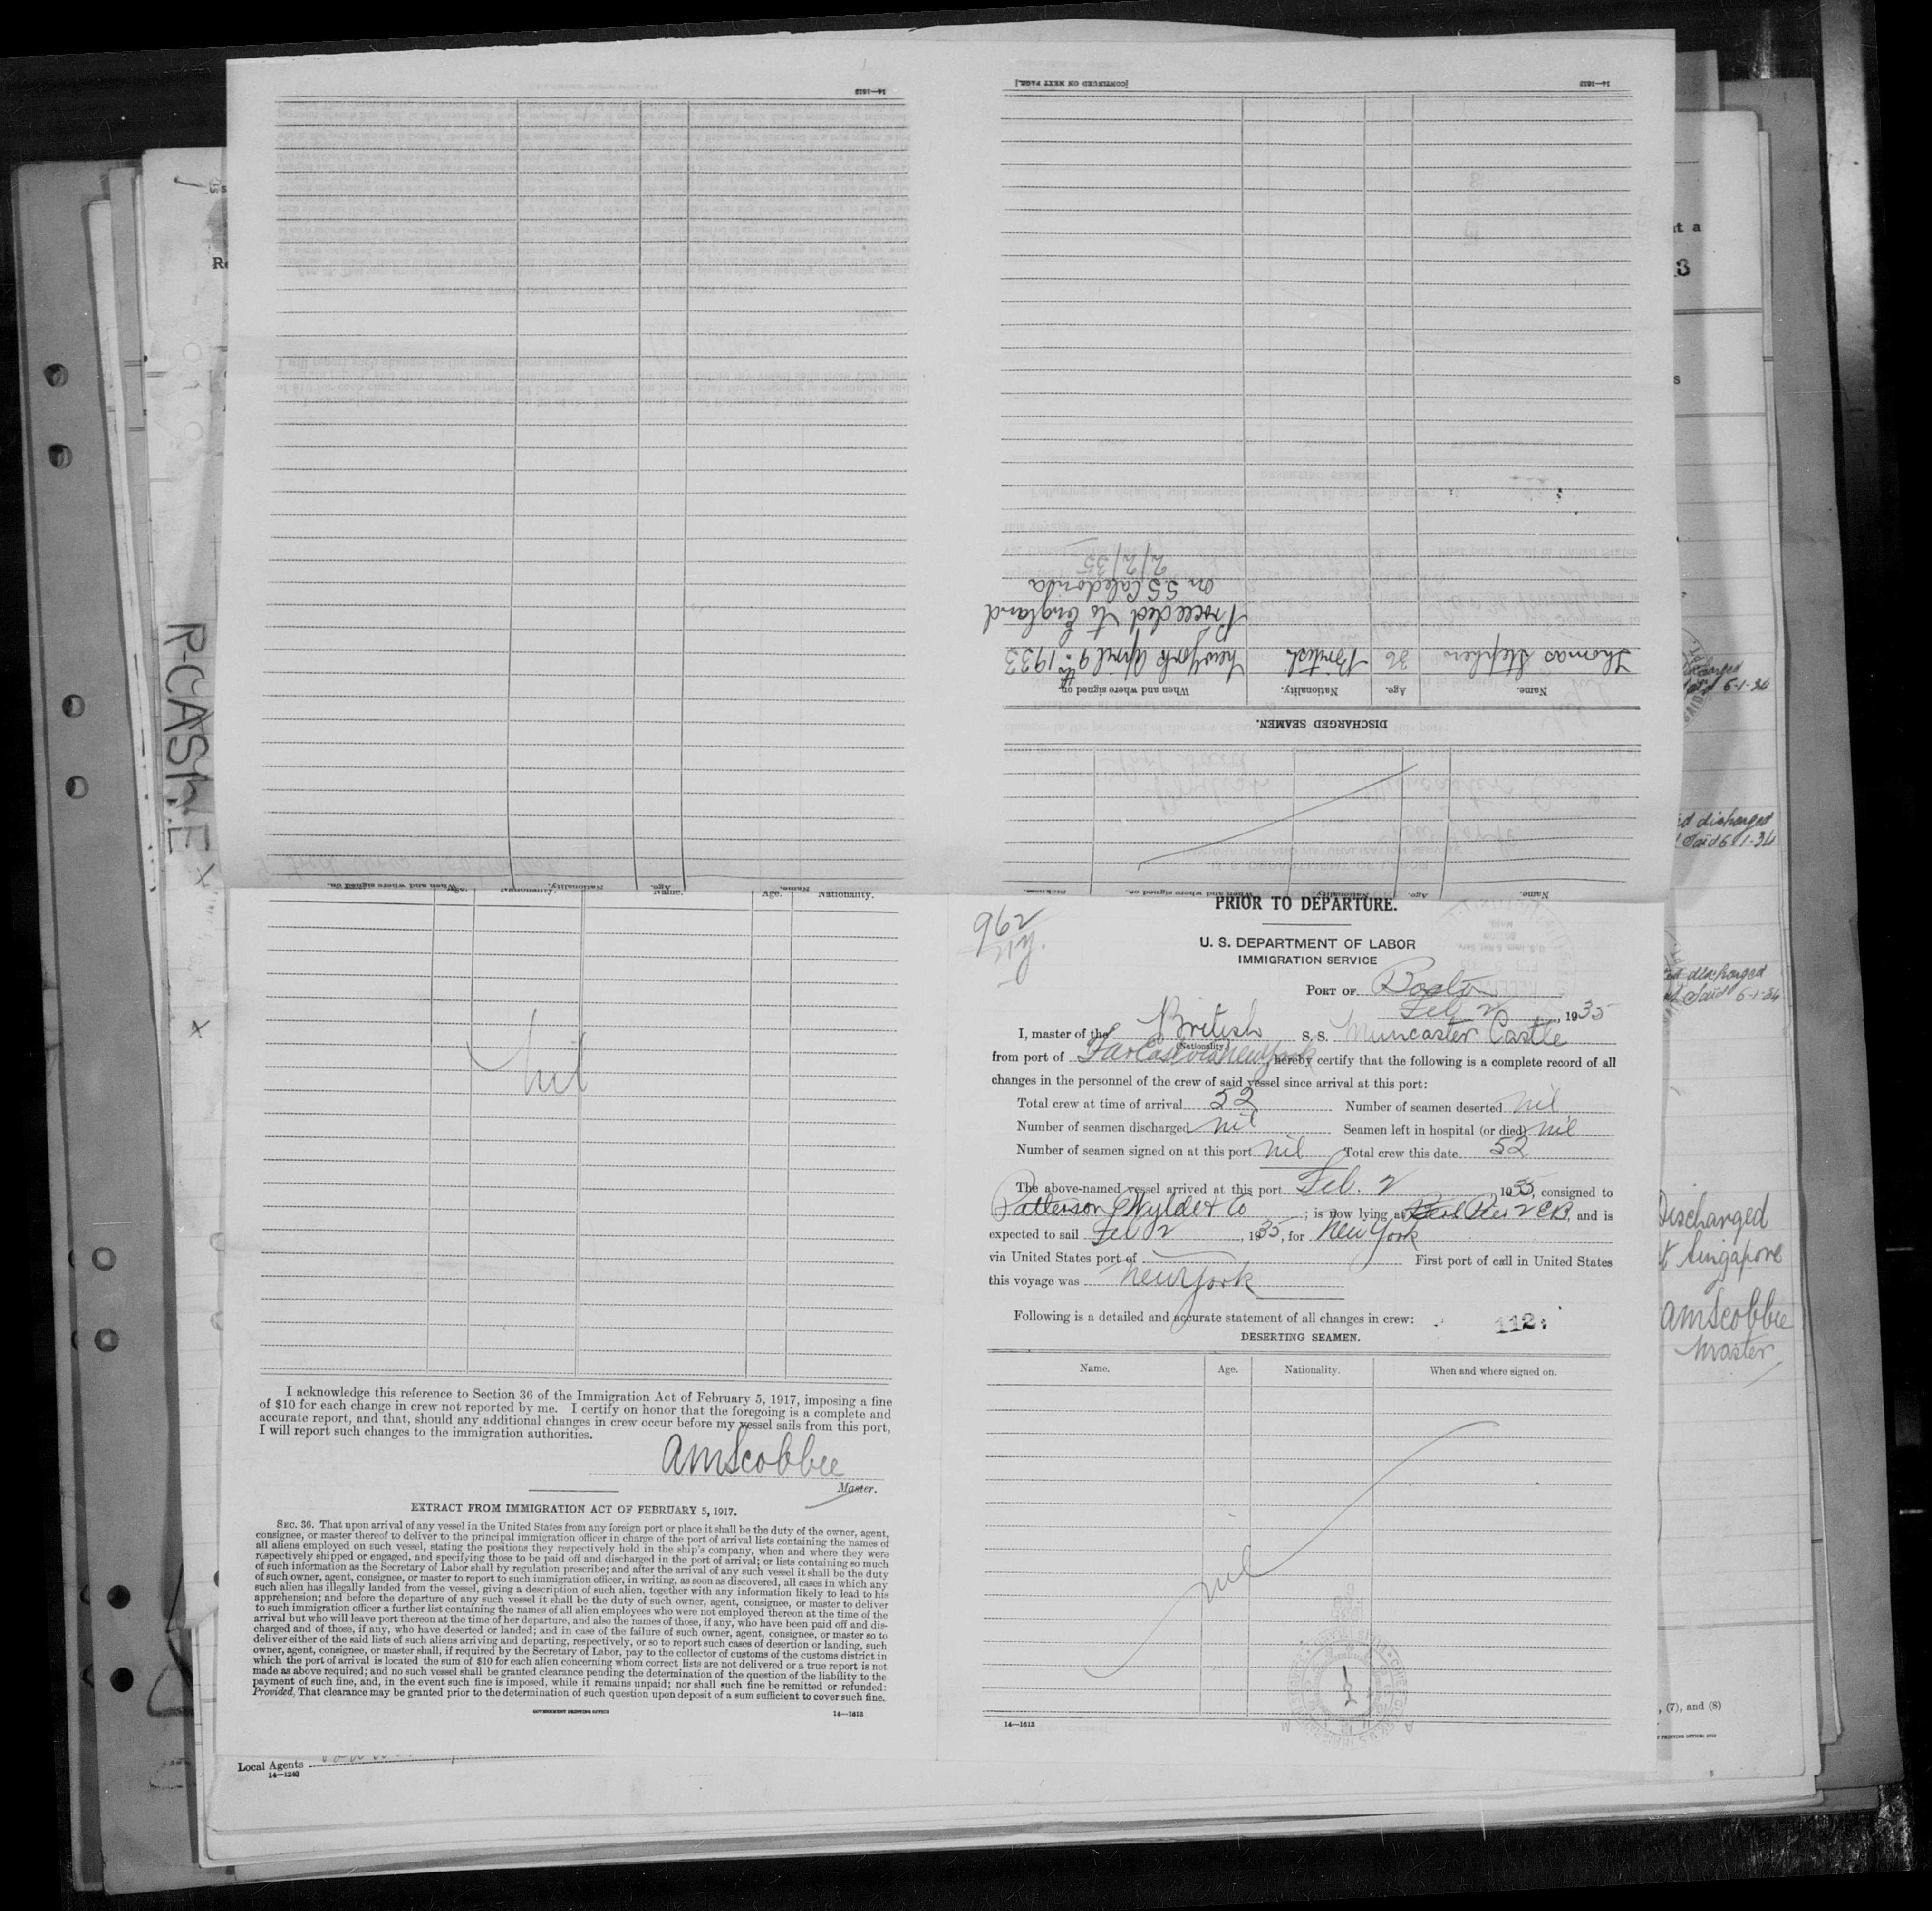 14—1613
[CONTINUED ON NEXT PAGE.]
14—1613
on S S Caledonia
2/2/35
Proceeded to England
Thomas Stephen 36 British New York April 9th 1933
Name. Age. Nationality. When and where signed on.
DISCHARGED SEAMEN.
Name. Age. Nationality. When and where signed on.
R-CASTLE
Age. Nationality.
nil
I acknowledge this reference to Section 36 of the Immigration Act of February 5, 1917, imposing a fine
of $10 for each change in crew not reported by me. I certify on honor that the foregoing is a complete and
accurate report, and that, should any additional changes in crew occur before my vessel sails from this port,
I will report such changes to the immigration authorities.
AMScobbie
Master.
EXTRACT FROM IMMIGRATION ACT OF FEBRUARY 5, 1917.
SEC. 36. That upon arrival of any vessel in the United States from any foreign port or place it shall be the duty of the owner, agent,
consignee, or master thereof to deliver to the principal immigration officer in charge of the port of arrival lists containing the names of
all aliens employed on such vessel, stating the positions they respectively hold in the ship's company, when and where they were
respectively shipped or engaged, and specifying those to be paid off and discharged in the port of arrival; or lists containing so much
of such information as the Secretary of Labor shall by regulation prescribe; and after the arrival of any such vessel it shall be the duty
of such owner, agent, consignee, or master to report to such immigration officer, in writing, as soon as discovered, all cases in which any
such alien has illegally landed from the vessel, giving a description of such alien, together with any information likely to lead to his
apprehension; and before the departure of any such vessel it shall be the duty of such owner, agent, consignee, or master to deliver
to such immigration officer a further list containing the names of all alien employees who were not employed thereon at the time of the
arrival but who will leave port thereon at the time of her departure, and also the names of those, if any, who have been paid off and dis-
charged and of those, if any, who have deserted or landed; and in case of the failure of such owner, agent, consignee, or master so to
deliver either of the said lists of such aliens arriving and departing, respectively, or so to report such cases of desertion or landing, such
owner, agent, consignee, or master shall, if required by the Secretary of Labor, pay to the collector of customs of the customs district in
which the port of arrival is located the sum of $10 for each alien concerning whom correct lists are not delivered or a true report is not
made as above required; and no such vessel shall be granted clearance pending the determination of the question of the liability to the
payment of such fine, and, in the event such fine is imposed, while it remains unpaid; nor shall such fine be remitted or refunded:
Provided, That clearance may be granted prior to the determination of such question upon deposit of a sum sufficient to cover such fine.
GOVERNMENT PRINTING OFFICE 14—1613
Local Agents
14—1240
962
PRIOR TO DEPARTURE.
U. S. DEPARTMENT OF LABOR
IMMIGRATION SERVICE
PORT OF Boston
Feb 2, 1935
I, master of the British S. S. Muncaster Castle
(Nationality)
from port of Far East via New York hereby certify that the following is a complete record of all
changes in the personnel of the crew of said vessel since arrival at this port:
Total crew at time of arrival 52 Number of seamen deserted nil
Number of seamen discharged nil Seamen left in hospital (or died) nil
Number of seamen signed on at this port nil Total crew this date 52
The above-named vessel arrived at this port Feb. 2 1935, consigned to
Patterson Wylde & Co; is now lying at Pier 2 and is
expected to sail Feb 2, 1935, for New York
via United States port of First port of call in United States
this voyage was New York
Following is a detailed and accurate statement of all changes in crew: 112
DESERTING SEAMEN.
Name. Age. Nationality. When and where signed on.
nil
14—1613
6-1-34
discharged
Said 6-1-34
discharged
Said 6-1-34
Discharged
at Singapore
AMScobbie
Master
, (7), and (8)